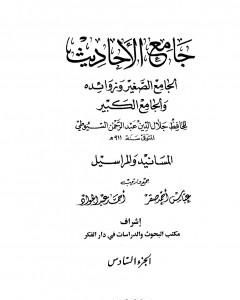 جامع الأحاديث
الجامع الصغير وزوائده
والجامع الكبير
للحافظ جلال الدين عبد الرحمن السيوطي
المتوفى سنة ٩١١هـ
المسانيد والمراسيل
جمع وترتيب
عباس أحمد صقر أحمد عبد الجواد
إشراف
مكتب البحوث والدراسات في دار الفكر
الجزء السادس